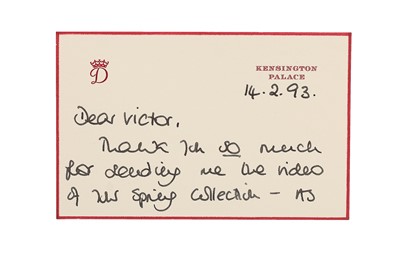 D
KENSINGTON
PALACE
14.2.93.
Dear Victor,
Thank you so much
for sending me the video
of your Spring Collection -